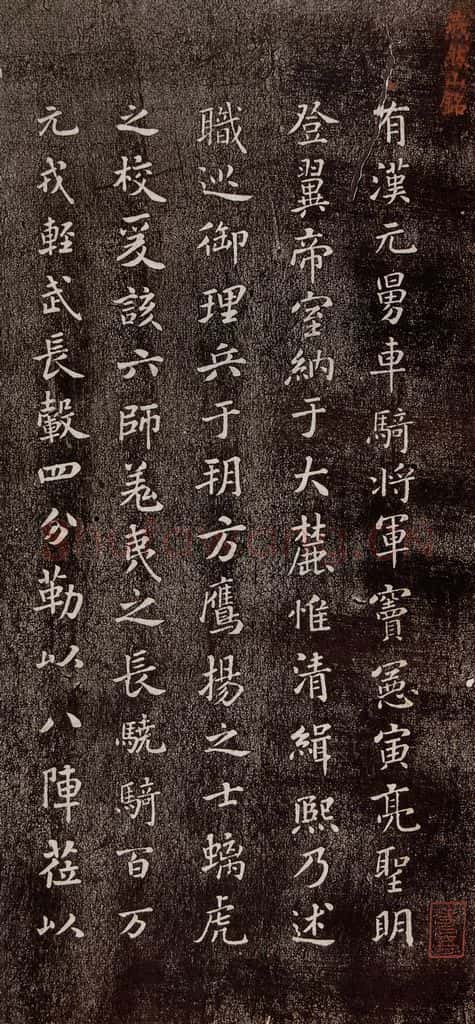 燕然山銘
有漢元舅車騎将軍竇憲寅亮聖明
登翼帝室納于大麓惟清緝熙乃述
職巡御理兵于朔方鷹揚之士螭虎
之校爰該六師羌夷之長驍騎百万
元戎輕武長轂四分勒以八陣莅以